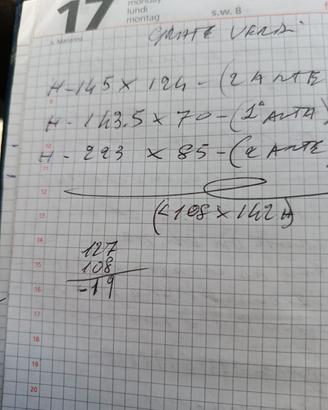 17
monday
lundi
montag
s.w. 8
GRATE VERDI
H-145 x 124-(2 ANTE
H-143.5 x 70-(1ª ANTA)
H-223 x 85-(2 ANTE
12
13
(<108 x 142 H)
14
127
15
108
16
-19
17
18
19
20